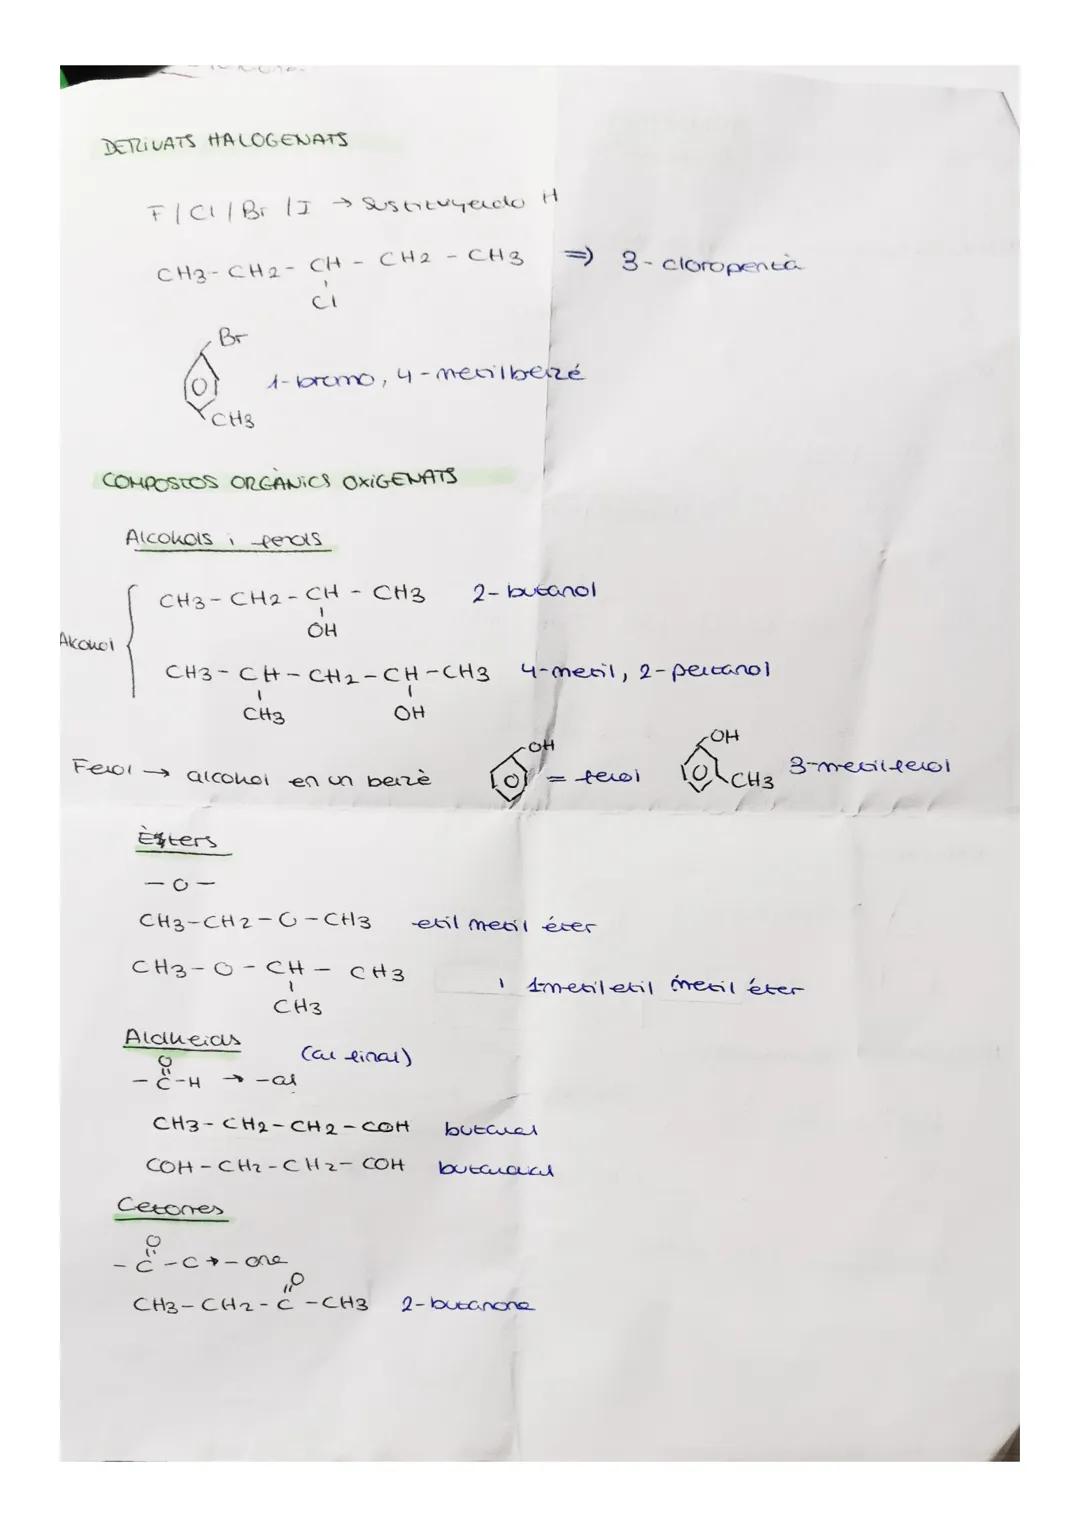 DERIVATS HALOGENATS
F / Cl / Br / I → Sustituyendo H
CH3-CH2-CH-CH2-CH3 ⇒ 3-cloropentà
Cl
Br
1-bromo, 4-metilbenzé
CH3
COMPOSTOS ORGÀNICS OXIGENATS
Alcohols i fenols
CH3-CH2-CH-CH3 2-butanol
OH
Alcohol
CH3-CH-CH2-CH-CH3 4-metil, 2-pentanol
CH3 OH
Fenol → alcohol en un benzè
OH
= fenol
OH
CH3
3-metilfenol
Èters
-O-
CH3-CH2-O-CH3 etil metil éter
CH3-O-CH-CH3
1metiletil metil éter
CH3
Aldheids
(al final)
O
-C-H → -al
CH3-CH2-CH2-COH butanal
COH-CH2-CH2-COH butandial
Cetones
O
-C-C → -ona
O
CH3-CH2-C-CH3 2-butanona